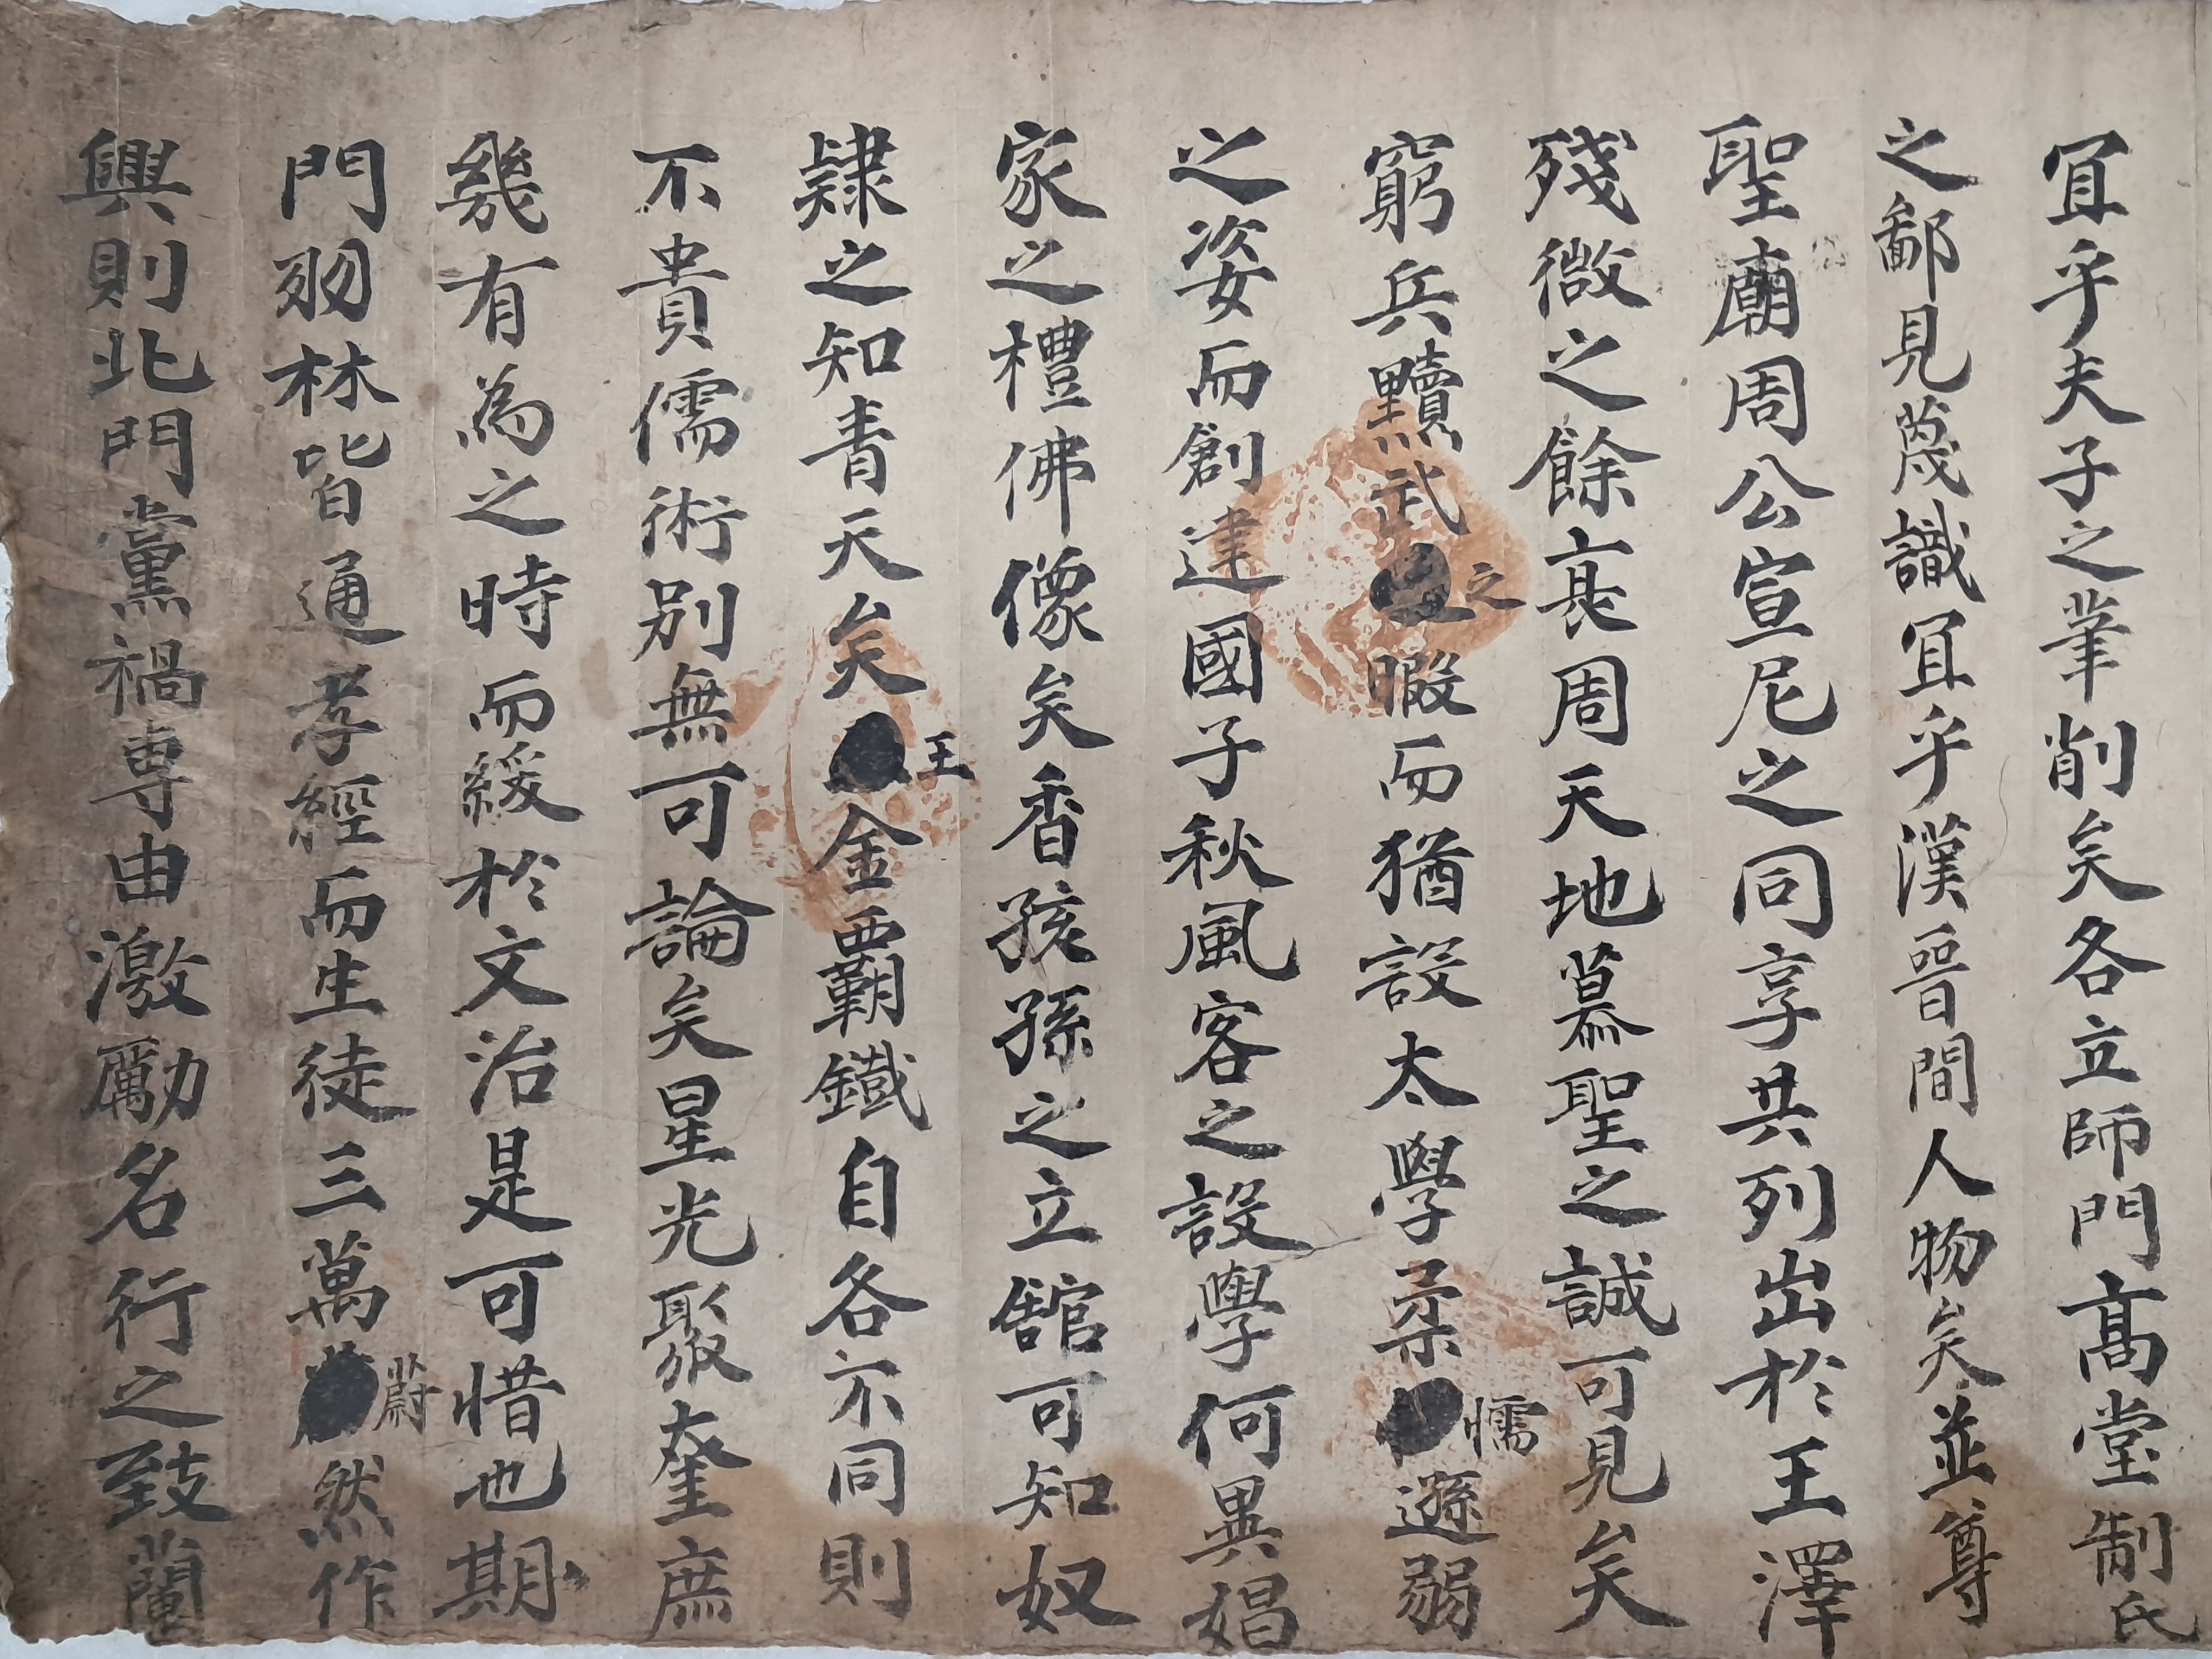 宜乎夫子之筆削矣各立師門高堂制氏
之鄙見蔑識宜乎漢晉間人物矣並尊
聖廟周公宣尼之同享共列出於王澤
殘微之餘袁周天地慕聖之誠可見矣
窮兵黷武之暇而猶設太學柔懦遜弱
之姿而創建國子秋風客之設學何異娼
家之禮佛像矣香孩孫之立舘可知奴
隸之知青天矣王金覇鐵自各不同則
不貴儒術別無可論矣星光聚奎庶
幾有為之時而緩於文治是可惜也期
門羽林皆通孝經而生徒三萬蔚然作
興則北門黨禍專由激勵名行之致蘭